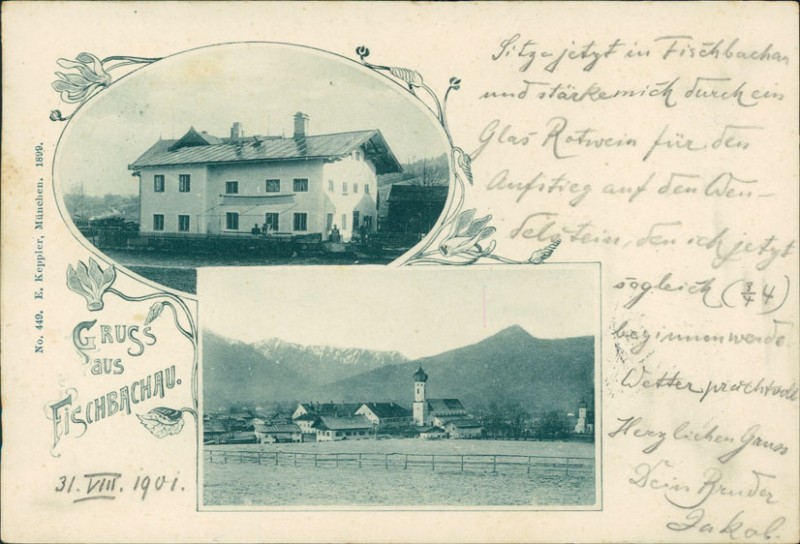 No. 449. E. Keppler, München. 1899.
GRUSS
AUS
FISCHBACHAU.
31. VIII. 1901.
Sitze jetzt in Fischbachau
und stärke mich durch ein
Glas Rotwein für den
Aufstieg auf den Wen-
delstein, den ich jetzt
sogleich (3/4 4)
beginnen werde.
Wetter prachtvoll
Herzlichen Gruss
Dein Bruder
Jakob.